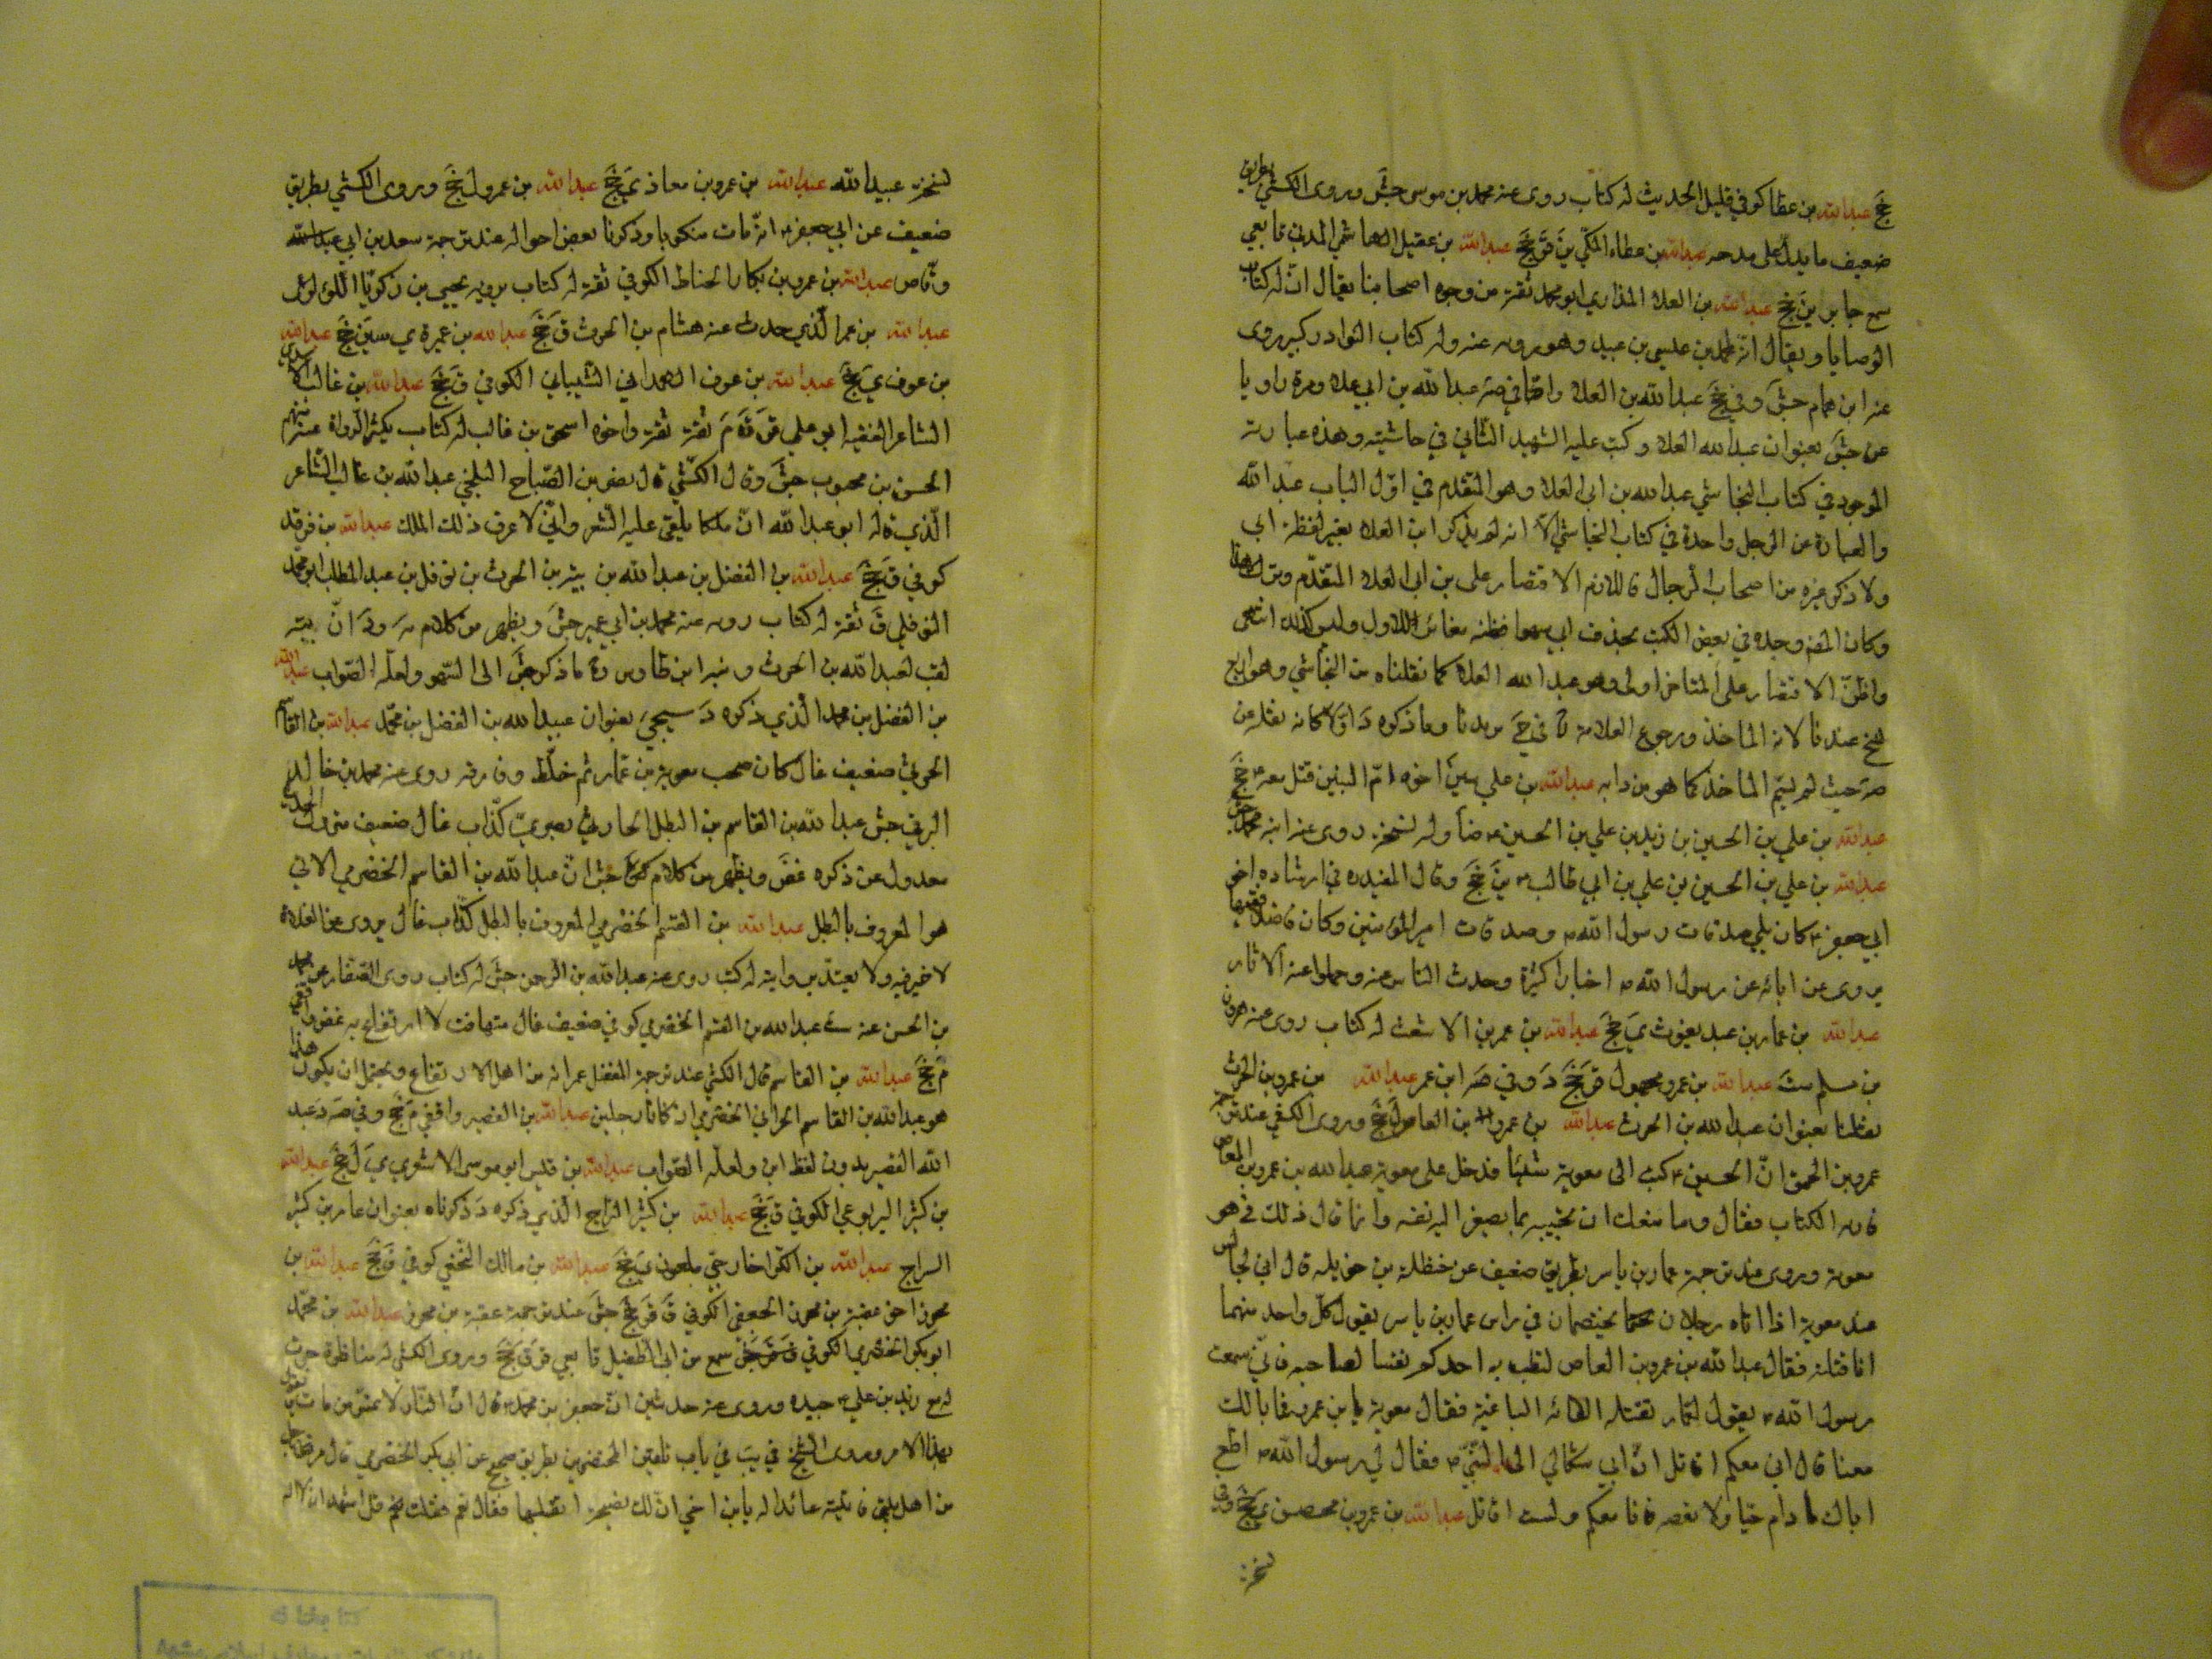 جخ عبدالله بن عطا كوفي قليل الحديث له كتاب روى عنه محمد بن موسى جش وروى الكشي بطريق
ضعيف ما يدل على مدحه عبدالله بن عطاء المكي ين قر جخ عبدالله بن عقيل الهاشمي المدني تابعي
سمع جابر ين جخ عبدالله بن العلا المذاري ابو محمد ثقة من وجوه اصحابنا يقال ان له كتاب
الوصايا ويقال انه لمحمد بن عيسى بن عبيد وهو رواه عنه وله كتاب النوادر كبير روى
عنه ابن همام جش وفي جخ عبدالله بن العلا واما في صه عبدالله بن ابي علا ومرة راويا
عن جش بعنوان عبدالله العلا وكتب عليه الشهيد الثاني في حاشيته وهذه عبارته
الموجود في كتاب النجاشي عبدالله بن ابي العلا وهو المتقدم في اول الباب عبدالله
والعبارة عن الرجل واحدة في كتاب النجاشي الا انه لم يذكر ابن العلا بغير لفظة ابي
ولا ذكر غيره من اصحاب الرجال فاللازم الاقتصار على بن ابي العلا المتقدم وترك هذا
وكان المصنف وجده في بعض الكتب بحذف ابي سهوا فظنه مغاير للاول وليس كذلك انتهى
واظن الاقتصار على المتاخر اولى وهو عبدالله العلا كما نقلناه من النجاشي وهو اربع
نسخ عندنا لانه الماخذ ورجوع العلامة
صه حيث لم يتم الماخذ كما هو من دابه عبدالله بن علي سين اخوه ام البنين قتل معه جخ
عبدالله بن علي بن الحسين بن زيد بن علي بن الحسين ضا وله نسخة روى عنه ابنه محمد جش
عبدالله بن علي بن الحسين بن علي بن ابي طالب ين جخ وقال المفيد في ارشاده اخو
ابي جعفر كان يلي صدقات رسول الله وصدقات امير المؤمنين وكان فاضلا فقيها
يروى عن ابائه عن رسول الله اخبارا كثيرة وحدث الناس عنه وحملوا عنه الاثار
عبدالله بن عمار بن عبد يغوث ي جخ عبدالله بن عمر بن الاشعث له كتاب روى عنه هرون
بن مسلم ست عبدالله بن عمرو مجهول قر جخ د وفي صه ابن عمر عبدالله بن عمرو بن الحرث
نقلنا بعنوان عبدالله بن الحرث عبدالله بن عمرو بن العاص ل جخ وروى الكشي عند ترجمة
عمرو بن الحمق ان الحسين كتب الى معوية شيئا فدخل على معوية عبدالله بن عمرو بن العاص
فاراه الكتاب فقال وما منعك ان تجيبه بما يصغر اليه نفسه وانما قال ذلك في هو
معوية وروى عند ترجمة عمار بن ياسر بطريق ضعيف عن حنظلة بن خويلد قال اني لجالس
عند معوية اذا اتاه رجلان يختصمان في راس عمار بن ياسر يقول كل واحد منهما
انا قتلته فقال عبدالله بن عمرو بن العاص ليطب به احدكم نفسا لصاحبه فاني سمعت
رسول الله يقول لعمار تقتله الفئه الباغية فقال معوية يا بن عمرو فما بالك
معنا قال اني معكم اقاتل ان ابي شكاني الى النبي فقال لي رسول الله اطع
اباك ما دام حيا ولا تعصه فانا معكم ولست اقاتل عبدالله بن عمرو بن محصن ي جخ وفي
نسخة
نسخة عبيدالله عبدالله بن عمرو بن معاذ ي جخ عبدالله بن عمرو ل جخ وروى الكشي بطريق
ضعيف عن ابي جعفر انه مات منكوبا وذكرنا بعض احواله عند ترجمة سعد بن ابي عبدالله
وقاص عبدالله بن عمرو بن بكار الحناط الكوفي ثقة له كتاب يرويه يحيى بن زكريا اللؤلؤي
عبدالله بن عمر الذي حدث عنه هشام بن الحرث ق جخ عبدالله بن عميرة ي سين جخ عبدالله
بن عوف ي جخ عبدالله بن عوف الهمداني الشيباني الكوفي ق جخ عبدالله بن غالب الاسدي
الشاعر الفقيه ابو علي ثقة ثقة واخوه اسحق بن غالب له كتاب يكثر الرواة عنه منهم
الحسن بن محبوب جش وقال الكشي قال نصر بن الصباح البلخي عبدالله بن غالب الشاعر
الذي قال له ابو عبدالله ان ملكا يلقى عليه الشعر واني لاعرف ذلك الملك عبدالله بن فرقد
كوفي ق جخ عبدالله بن الفضل بن عبدالله بن ببه بن الحرث بن نوفل بن عبد المطلب ابو محمد
النوفلي ق ثقة له كتاب رواه عنه محمد بن ابي عمير جش ويظهر من كلام صه ود ان ببه
لقب لعبدالله بن الحرث ونسب ابن طاوس ره ما ذكره جش الى السهو ولعله الصواب عبدالله
بن الفضل بن محمد الذي ذكره د سيجيء بعنوان عبيدالله بن الفضل بن محمد عبدالله بن القاسم
الحرثي ضعيف غال كان صحب معوية بن عمار ثم خلط وفارقه روى عنه محمد بن خالد
البرقي جش عبدالله بن القاسم بن البطل الحارثي بصري كذاب غال ضعيف متروك الحديث
معدول عن ذكره غض ويظهر من كلام جش ان عبدالله بن القاسم الحضرمي الاتي
هو المعروف بالبطل عبدالله بن القسم الحضرمي المعروف بالبطل كذاب غال يروى عن الغلاة
لا خير فيه ولا يعتد بروايته له كتب روى عنه عبدالله بن الرحمن جش له كتاب روى الصفار عن محمد
بن الحسن عنه ست عبدالله بن القسم الحضرمي كوفي ضعيف غال متهافت لا ارتفاع به غض واقفي
م جخ عبدالله بن القاسم قال الكشي عند ترجمة المفضل عمر انه من اهل الارتفاع ويحتمل ان يكون هذا
هو عبدالله بن القاسم الحراني الحضرمي ان كانا رجلين عبدالله بن القصير واقفي م جخ وفي صه د عبد
الله القصير بدون لفظ ابن ولعله الصواب عبدالله بن قيس ابو موسى الاشعري ي ل جخ عبدالله
بن كثير اليربوعي الكوفي ق جخ عبدالله بن كثير السراج الذي ذكره د ذكرناه بعنوان عامر بن كثير
السراج عبدالله بن الكوا خارجي ملعون ي جخ عبدالله بن مالك النخعي كوفي ق جخ عبدالله بن
محرز اخو عقبة بن محرز الجعفي الكوفي ق قر جخ جش عند ترجمة عقبة بن محرز عبدالله بن محمد
ابو بكر الحضرمي الكوفي سمع من ابي الطفيل تابعي قر ق جخ وروى الكشي له مناظرة جرت
له مع زيد بن علي جيده وروى عنه حديثين ان جعفر بن محمد قال ان النار لا تمس من مات يقول
بهذا الامر وروى الشيخ في يب في باب تلقين المحتضرين بطريق صحيح عن ابي بكر الحضرمي قال مرض رجل
من اهل بيتي فاتيته عائدا له يا بن اخي ان لك نصيحة اتقبلها فقال نعم فقلت نعم قل اشهد ان لا اله